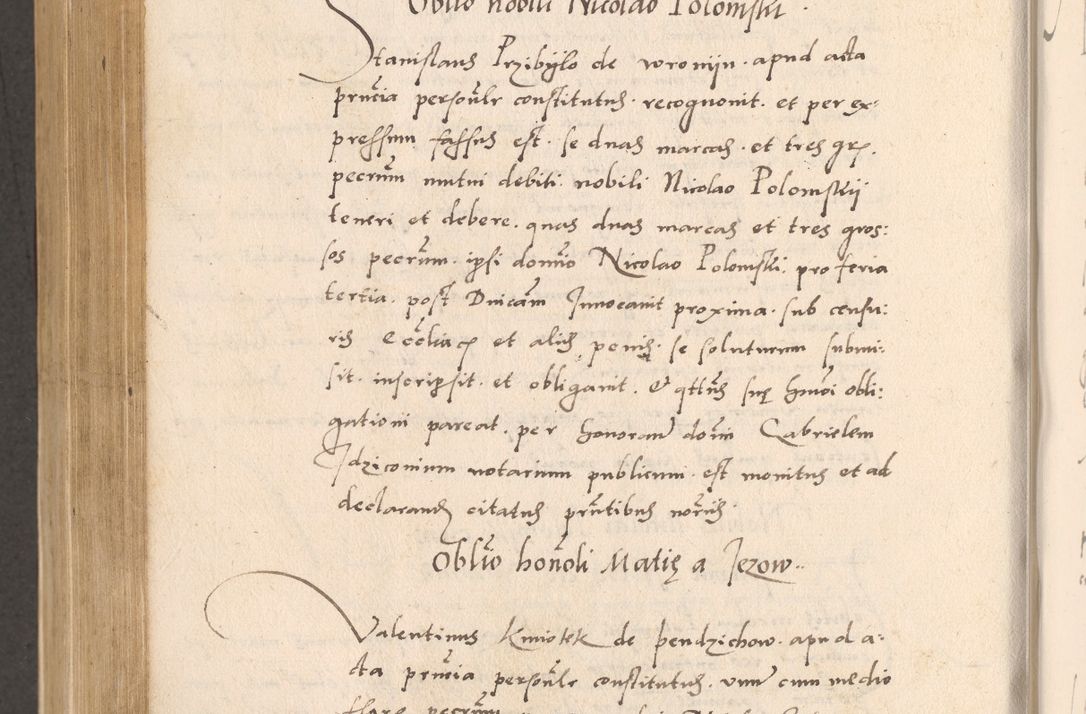 Oblio nobili Nicolao Polomski.
Stanislaus Przibyslo de wroniyn. apud acta
prncia personlr constitutus. recognouit. et per ex:
pressum fassus est. se duas marcas. et tres gros.
pecrum mutui debiti nobili Nicolao Polomskij
teneri et debere. quas duas marcas et tres gros:
sos pecrum. ipsi domio Nicolao Polomski. pro feria
tertia. post Dnicam Inuocauit proxima. sub censu:
ris et aliis penis. se soluturum submi:
sit. inscripsit. et obligauit. Et qttus suę hmoi obli:
gationi pareat. per honoran domi Gabrielem
Idziconium notarium publicum. est monitus et ad
declarand citatus prntibus norijs.
Oblio honoli Matię a Jezow..
Valentinus Kmiotek de Pendzichow. apud a:
cta prncia personlr constitutus. vnu cum medio